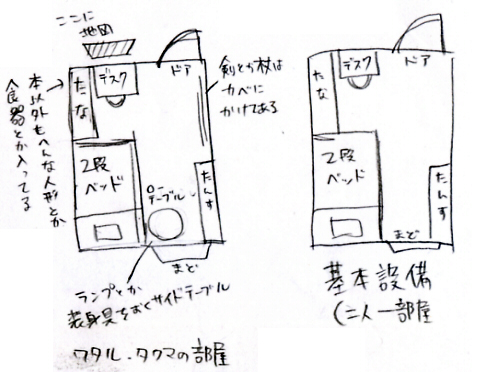 ここに
地図
デスク
ドア
たな
剣とか杖は
カベに
かけてある
本以外もへんな人形とか
食器とか入ってる
2段
ベッド
ロー
テーブル
たんす
まど
ランプとか
装身具をおくサイドテーブル
ワタル・タクマの部屋
デスク
ドア
たな
2段
ベッド
たんす
まど
基本設備
(二人一部屋